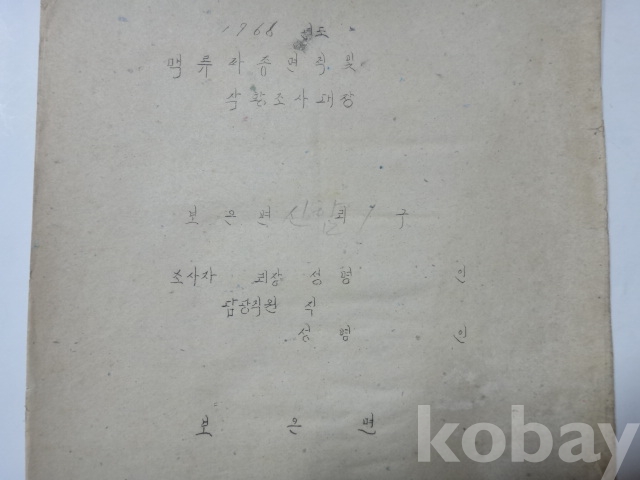 1968 년도
맥류파종면적 및
작황조사대장
보은면 신함리 1 구
조사자 리장 성명 인
담당직원 직
성명 인
보은면
kobay